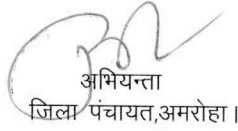 अभियन्ता
जिला पंचायत,अमरोहा।